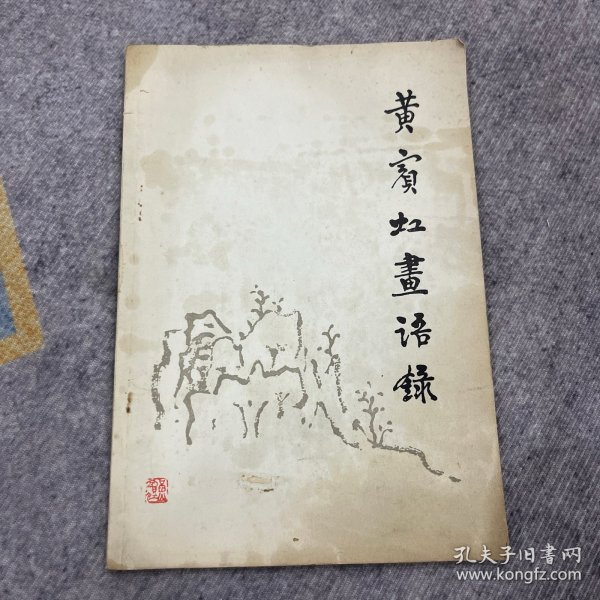 黄賓虹畫語錄
孔夫子旧書网
www.kongfz.com